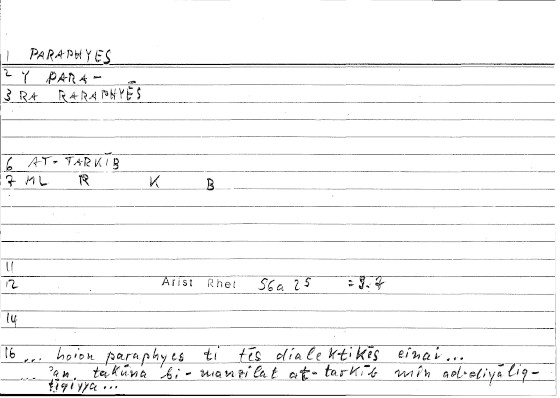 1 PARAPHYES
2 Y PARA-
3 RA RARAPHYĒS
6 AT-TARKĪB
7 ML R K B
11
12 Arist Rhet 56a 25 = 9.7
14
16 ... hoion paraphyes ti tēs dialektikēs einai ...
... ʾan takūna bi-manzilat at-tarkīb min ad-diyāliq-
tiqiyya ...